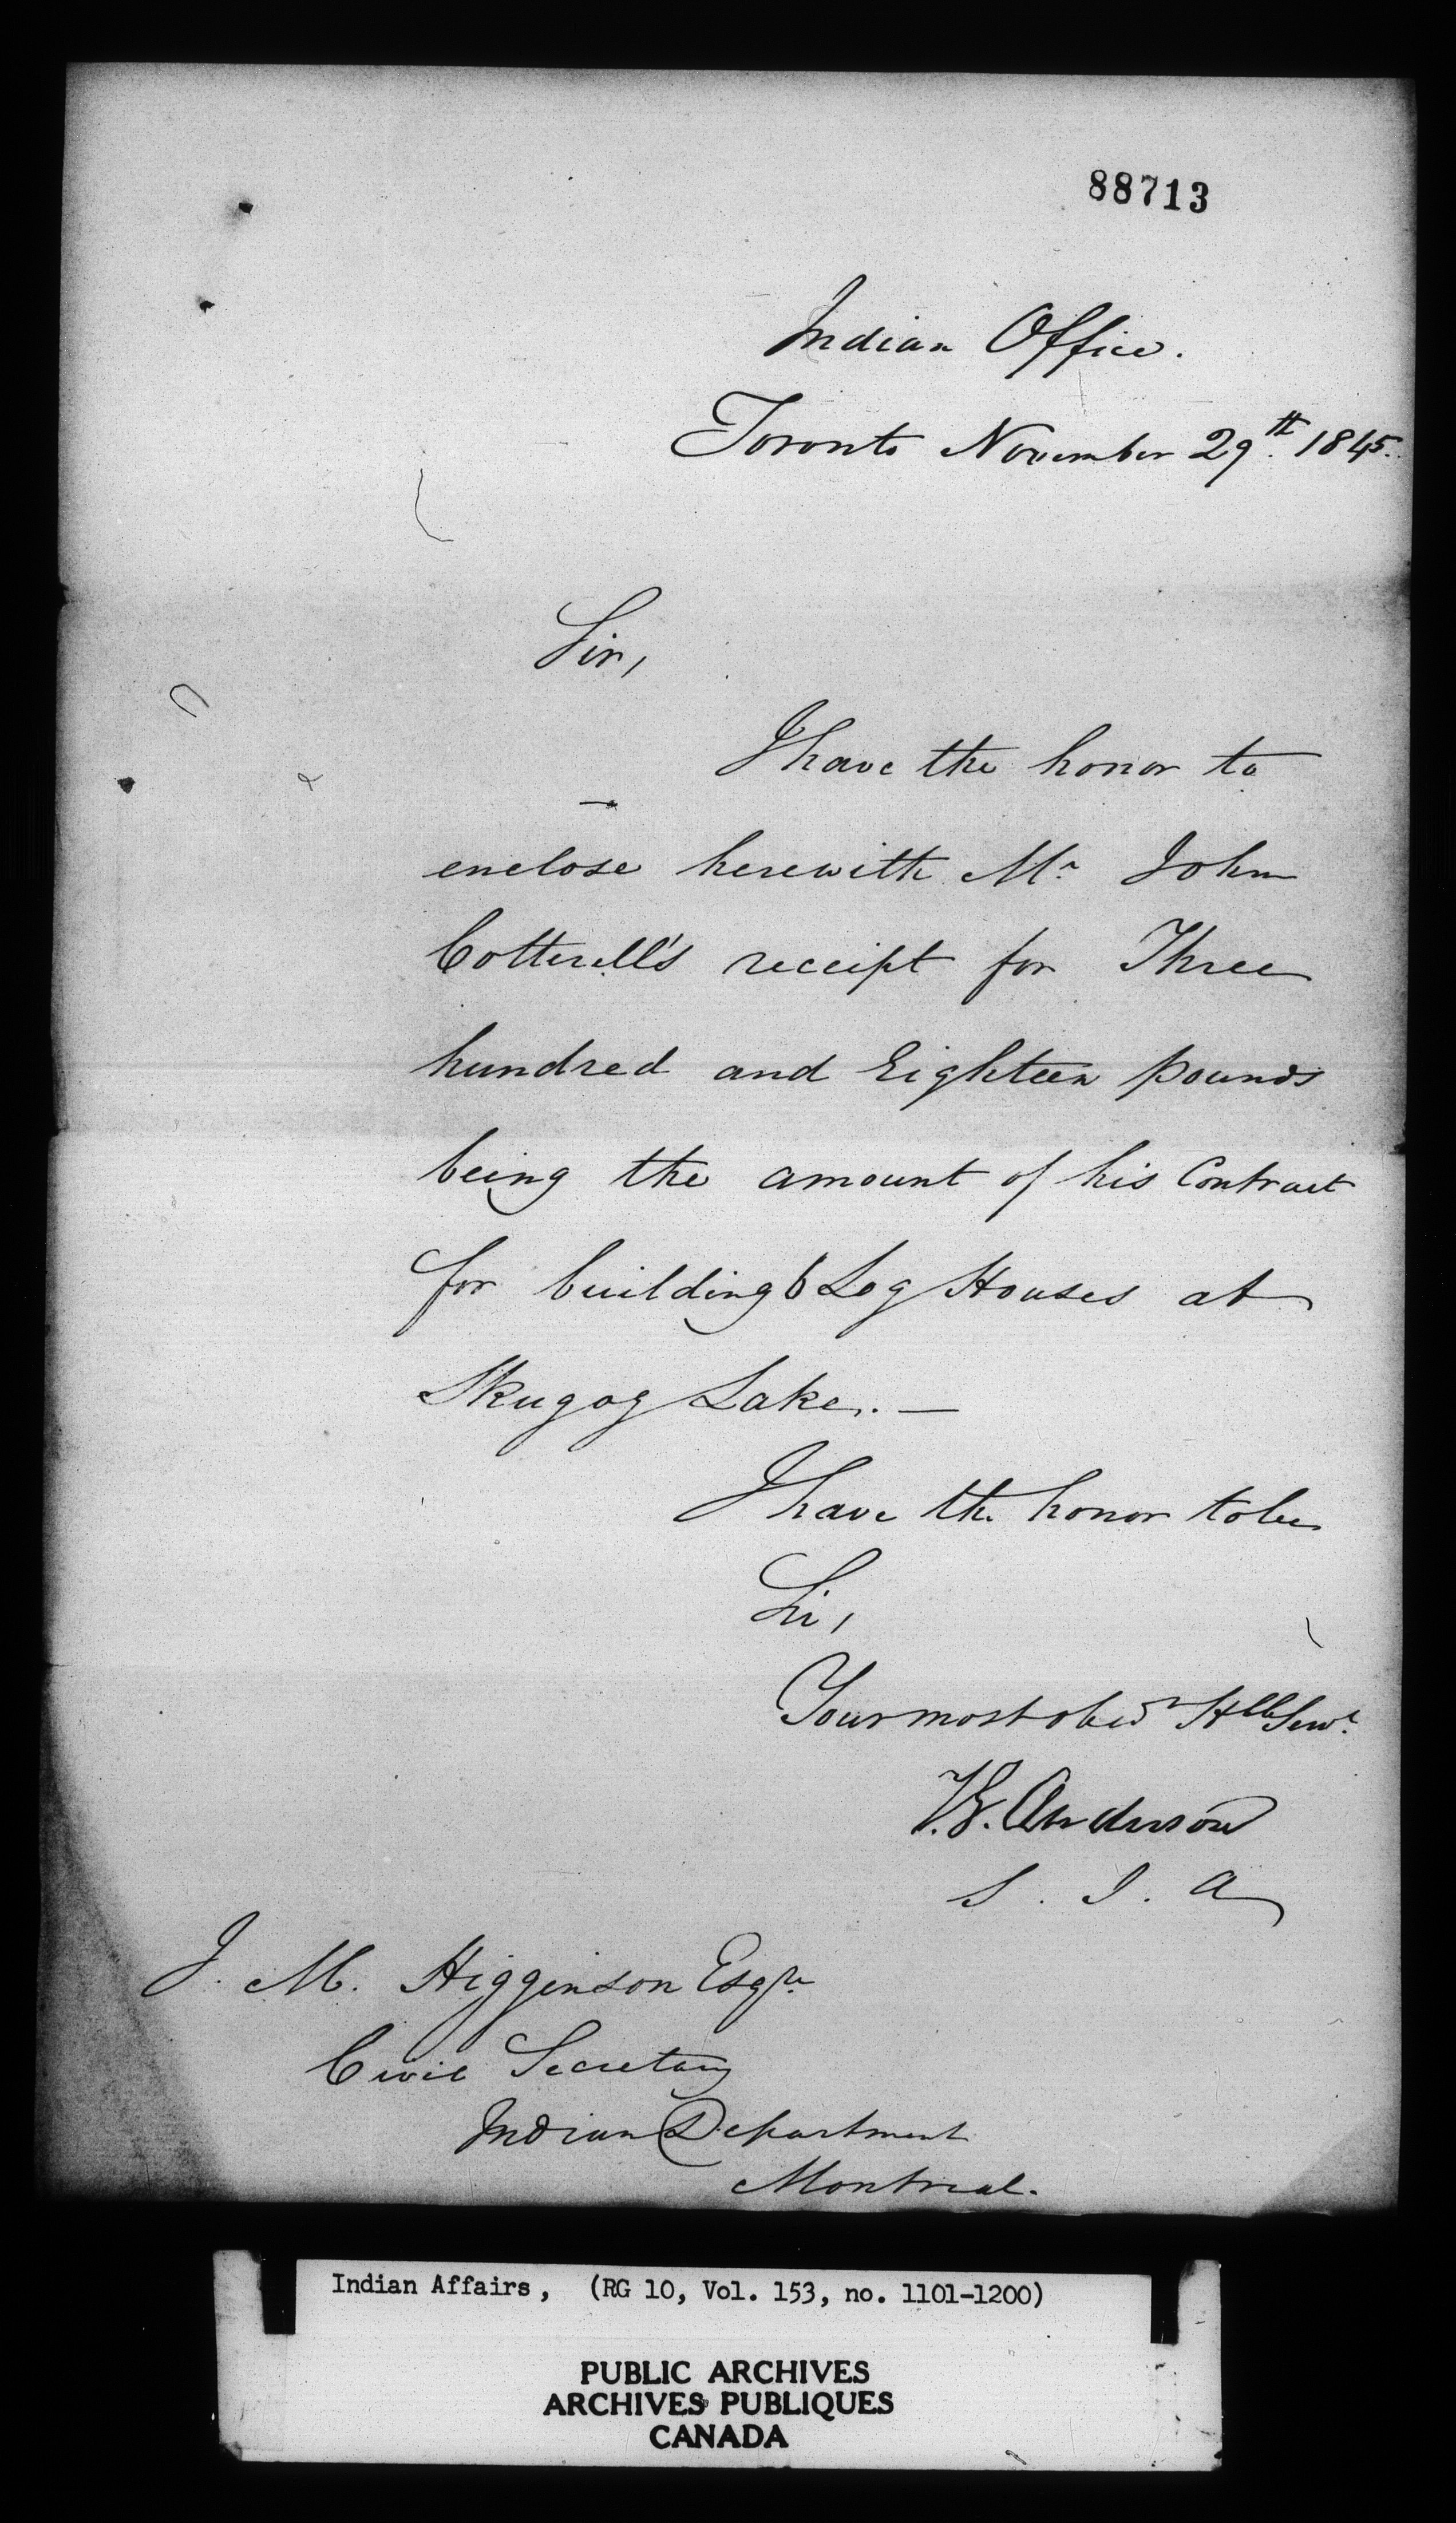 88713
Indian Office.
Toronto November 29th. 1845.
Sir,
I have the honor to
enclose herewith Mr John
Cotterell's receipt for Three
hundred and Eighteen pounds
being the amount of his Contract
for building 6 Log Houses at
Skugog Lake. —
I have the honor to be
Sir,
Your most obedt Hble Servt.
T.G. Anderson
S. I. A
J. M. Higginson Esqre
Civil Secretary
Indian Department
Montreal.
Indian Affairs, (RG 10, Vol. 153, no. 1101-1200)
PUBLIC ARCHIVES
ARCHIVES PUBLIQUES
CANADA